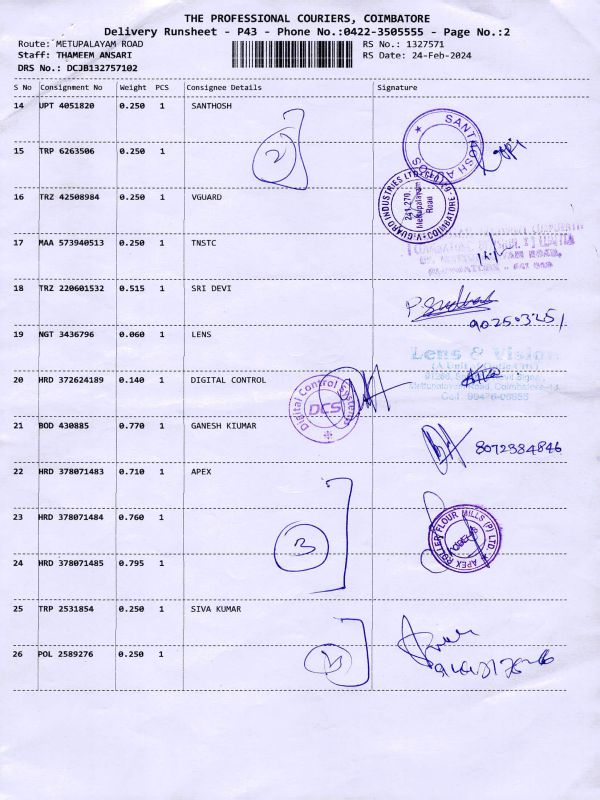 THE PROFESSIONAL COURIERS, COIMBATORE
Delivery Runsheet - P43 - Phone No.:0422-3505555 - Page No.:2
Route: METUPALAYAM ROAD RS No.: 1327571
Staff: THAMEEM ANSARI RS Date: 24-Feb-2024
DRS No.: DCJB132757102
S No Consignment No Weight PCS Consignee Details Signature
14 UPT 4051820 0.250 1 SANTHOSH
2
SANTHOSH
15 TRP 6263506 0.250 1
16 TRZ 42508984 0.250 1 VGUARD
V-GUARD INDUSTRIES LTD
Metupalayam
Road
COIMBATORE
17 MAA 573940513 0.250 1 TNSTC
18 TRZ 220601532 0.515 1 SRI DEVI
19 NGT 3436796 0.060 1 LENS
Lens & Vision
20 HRD 372624189 0.140 1 DIGITAL CONTROL
Digital Control Systems
DCS
21 BOD 430885 0.770 1 GANESH KIUMAR
8072384846
22 HRD 378071483 0.710 1 APEX
23 HRD 378071484 0.760 1
3
APEX ROLLER FLOUR MILLS (P) LTD
24 HRD 378071485 0.795 1
25 TRP 2531854 0.250 1 SIVA KUMAR
26 POL 2589276 0.250 1